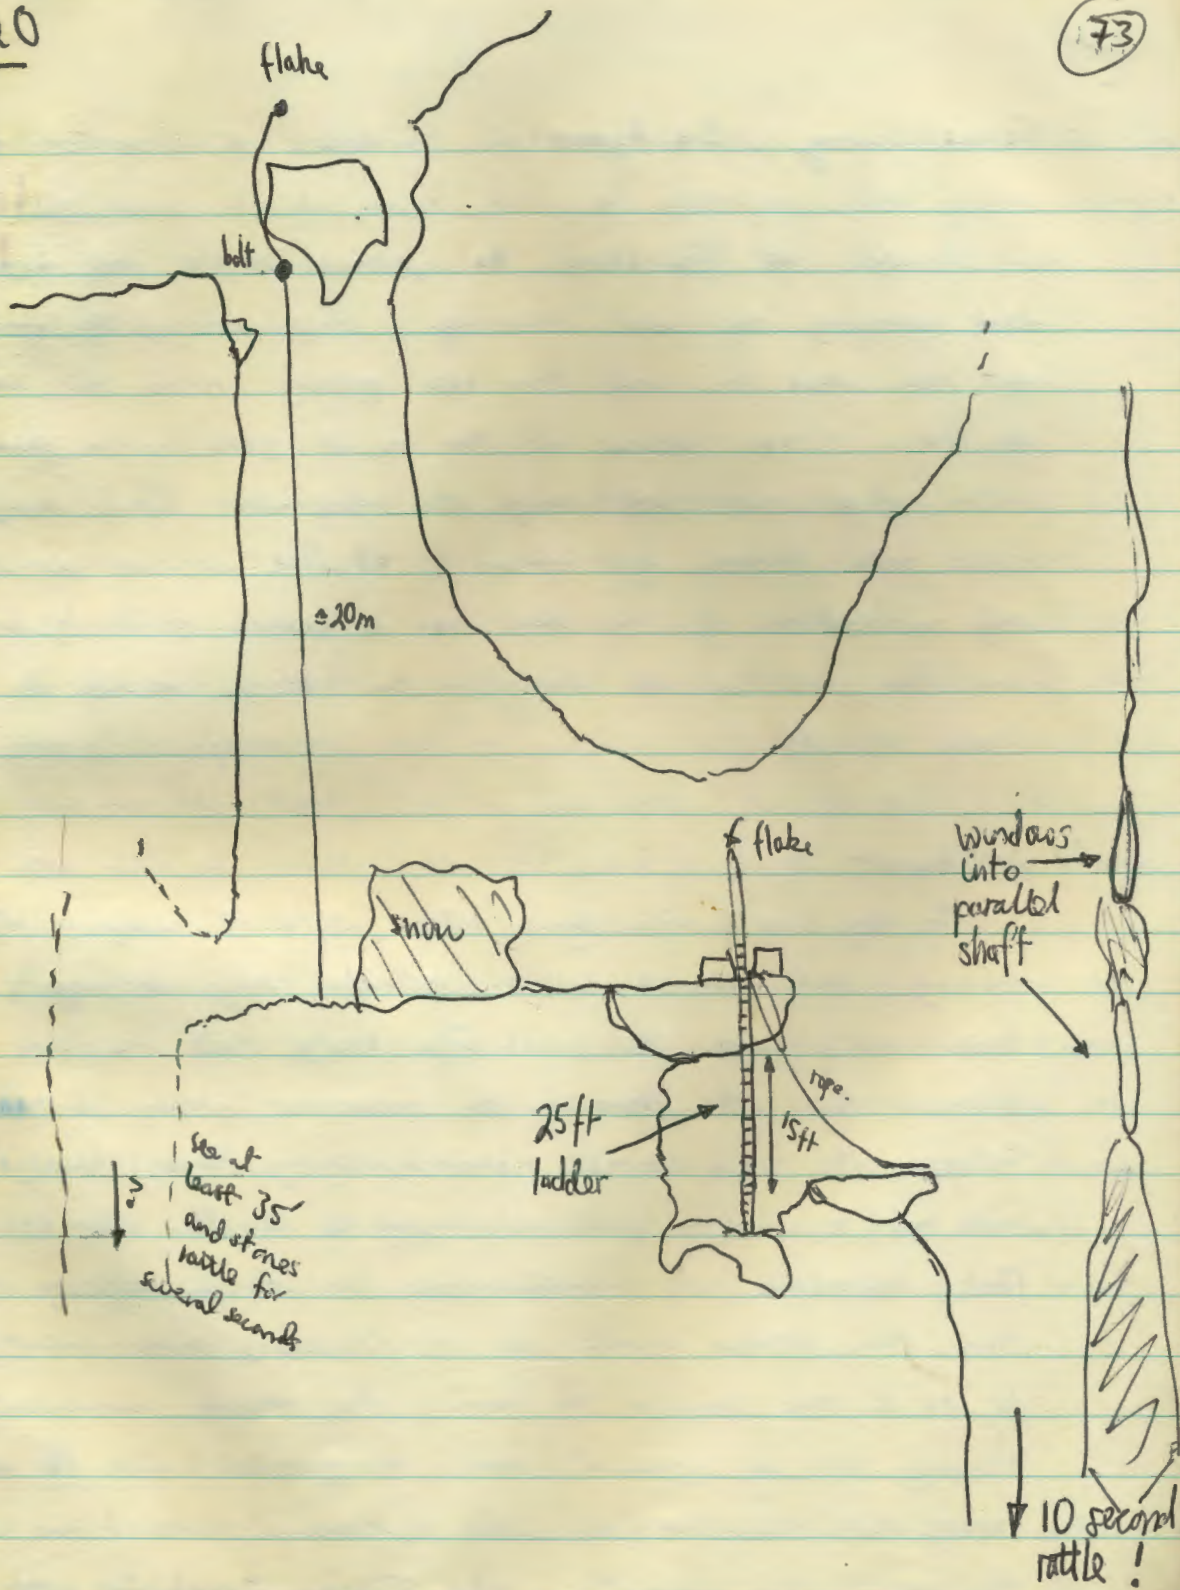 20
73
flake
bolt
±20m
snow
flake
windows
into
parallel
shaft
25ft
ladder
15ft
rope.
?
see at
least 35'
and stones
rattle for
several seconds
10 second
rattle !